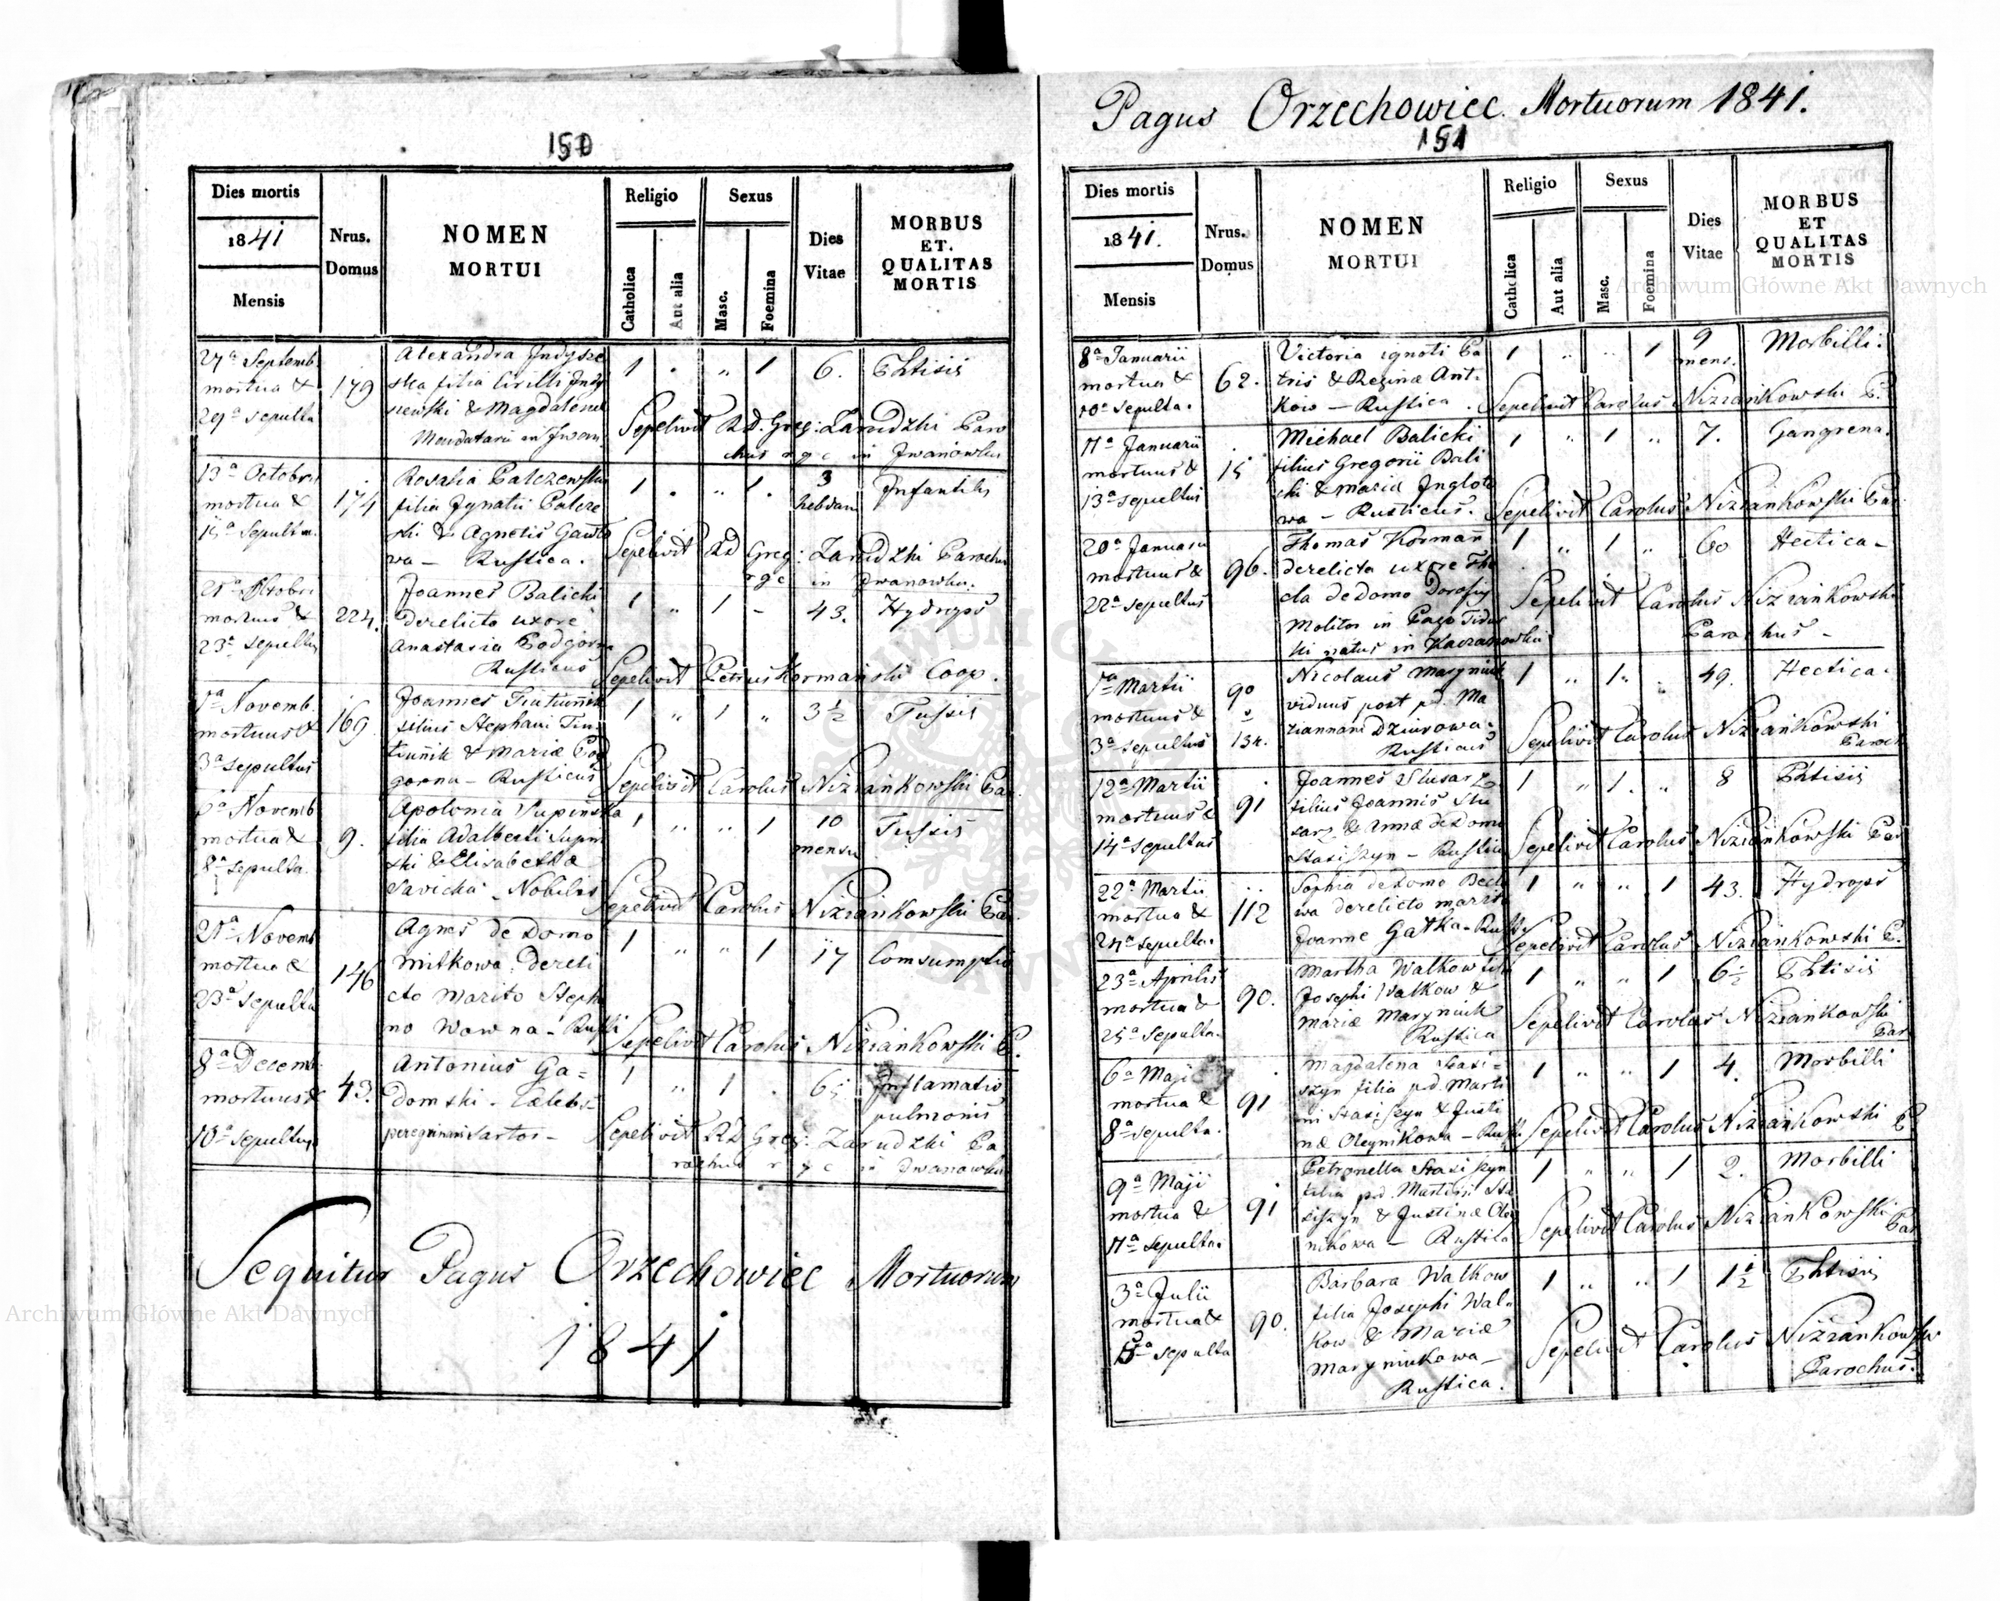 150
Dies mortis
1841
Mensis
Nrus.
Domus
NOMEN
MORTUI
Religio
Catholica
Aut alia
Sexus
Masc.
Foemina
Dies
Vitae
MORBUS
ET.
QUALITAS
MORTIS
27a Septemb
mortua &
29a sepulta
179
Alexandra Indysze
ska filia Cirilli Indy
szewski & Magdalena
Mandatarii in Iwan
1 " " 1 6. Phtisis
Sepelivit Rd. Greg: Zarudzki Paro
chus r g c in Iwanowka
13a Octobris
mortua &
15a Sepulta
174
Rosalia Palczewska
filia Ignatii Palcze
ski & Agnetis Gawło
wa — Rustica.
1 " " 1. 3
hebdom
Infantilis
Sepelivit Rd Greg: Zarudzki Parochus
r g c in Iwanowka.
21a Octobri
mortuus &
23a sepultus
224.
Joannes Balicki
derelicto uxore
Anastasia Podgorna
Rusticus
1 " 1 - 43. Hydrops
Sepelivit Petrus Kormański Coop.
1a Novemb.
mortuus &
3a sepultus
169
Joannes Tiutiunnik
filius Stephani Tiu
tiunnik & Mariæ Pod
gorna — Rusticus
1 " 1 " 3 1/2 Tussis
Sepelivit Carolus Niziankowski Par.
6a Novemb
mortua &
8a sepulta.
9.
Apolonia Supinska
filia Adalberti Supin
ski & Elisabethæ
Savicka - Nobilis
1 " " 1 10
mensiu
Tussis
Sepelivit Carolus Niziankowski Par.
21a Novemb
mortua &
23a sepulta
146
Agnes de Domo
Mitkowa: dereli
cto Marito Steph
no Wowna - Rusti
1 " " 1 17 Comsumptio
Sepelivit Carolus Niziankowski P.
8a Decemb
mortuus &
10a sepultus
43.
Antonius Ga=
domski - Cælebs -
peregrinans Sartor -
1 " 1 . Inflamatio
pulmonis
Sepelivit Rd Greg: Zarudzki Pa
rochus r g c in Iwanowka
Sequitur Pagus Orzechowiec Mortuorum
1841
Pagus Orzechowiec. Mortuorum 1841.
151
Dies mortis
1841.
Mensis
Nrus.
Domus
NOMEN
MORTUI
Religio
Catholica
Aut alia
Sexus
Masc.
Foemina
Dies
Vitae
MORBUS
ET
QUALITAS
MORTIS
8a Januarii
mortua &
10a sepulta.
62.
Victoria ignoti Pa
tris & Reginæ Ant-
ków — Rustica.
1 " " 1 9
mens.
Morbilli.
Sepelivit Carolus Niziankowski P.
11a Januarii
mortuus &
13a sepultus
15
Michael Balicki
filius Gregorii Bali
cki & Maria Inglot
wa — Rusticus.
1 " 1 " 7. Gangrena.
Sepelivit Carolus Niziankowski Par.
20a Januarii
mortuus &
22a sepultus
96.
Thomas Korman
derelicta uxore The
cla de domo Dorosiy
Molitor in Pago
ki natus in
1 " 1 " 60 Hectica -
Sepelivit Carolus Niziankowski
Parochus -
1a Martii
mortuus &
3a sepultus
90
134.
Nicolaus Maryniuk
viduus post pd. Ma
riannam Dziurowa.
Rusticus
1 " 1 " 49. Hectica.
Sepelivit Carolus Niziankowski
Paroch
12a Martii
mortuus &
14a sepultus
91
Joannes Slusarz
filius Joannis Slu
sarz & Annæ de Domo
Stasiszyn — Rustica
1 " 1. " 8 Phtisis
Sepelivit Carolus Niziankowski Par
22a Martii
mortua &
24a sepulta.
112
Sophia de Domo
wa derelicto marito
Joanne Gałka - Rusti
1 " " 1 43. Hydrops
Sepelivit Carolus Niziankowski P.
23a Aprilis
mortua &
25a sepulta.
90.
Martha Walkow filia
Josephi Walkow &
Mariæ Maryniuk
Rustica
1 " " 1 6 1/2 Phtisis
Sepelivit Carolus Niziankowski
Par
6a Maji
mortua &
8a sepulta.
91
Magdalena Stasi-
szyn filia pd. Marti
ni Stasiszyn & Justi
næ Oleynikowa — Rusti
1 " " 1 4. Morbilli
Sepelivit Carolus Niziankowski P
9a Maji
mortua &
11a sepulta.
91
Petronella Stasiszyn
filia pd. Martini Sta
siszyn & Justinæ Oley
nikowa — Rustica
1 " " 1 2. Morbilli
Sepelivit Carolus Niziankowski
Par
3a Julii
mortua &
5a sepulta
90.
Barbara Walkow
filia Josephi Wal-
kow & Mariæ
Maryniukowa —
Rustica.
1 " " 1 1 1/2 Phtisis
Sepelivit Carolus Niziankowski
Parochus.
Archiwum Główne Akt Dawnych
Archiwum Główne Akt Dawnych